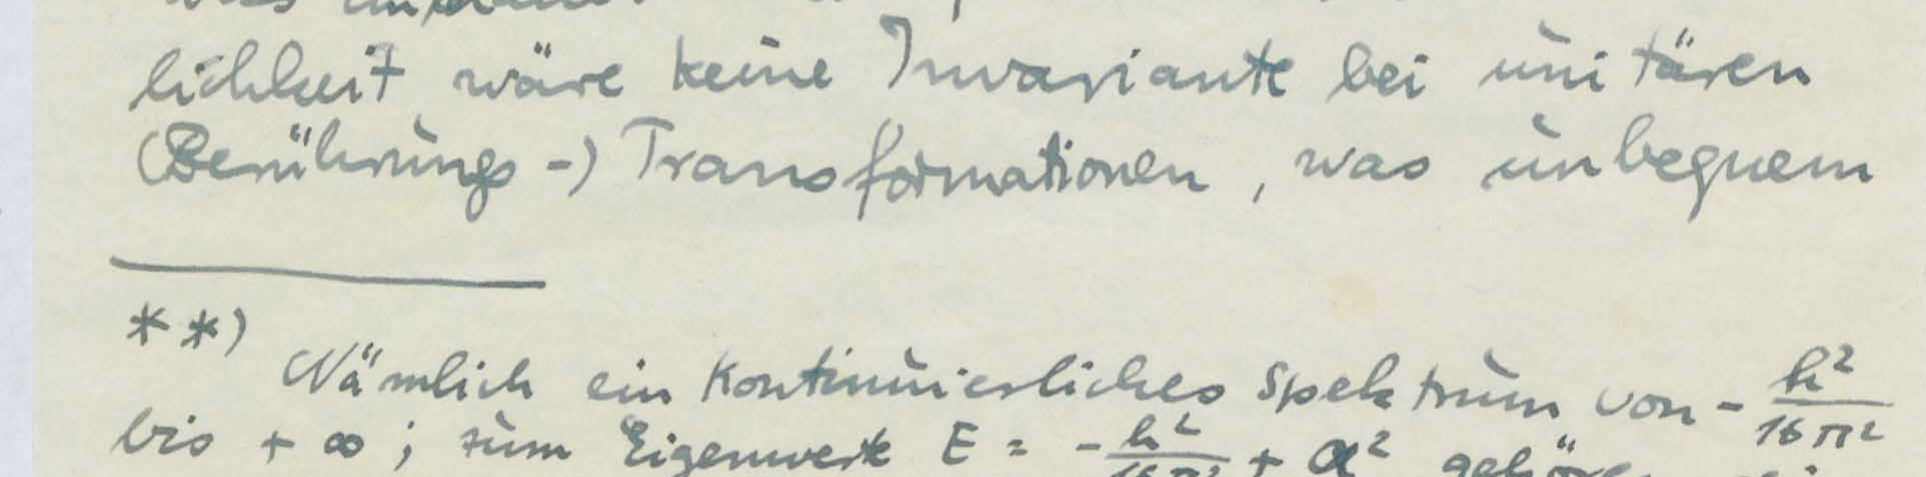 lichkeit wäre keine Invariante bei unitären
(Berührungs-) Transformationen, was unbequem
**) Nämlich ein kontinuierliches Spektrum von - h²/16π²
bis + ∞; zum Eigenwerte E = - h²/16π² + α² gehören